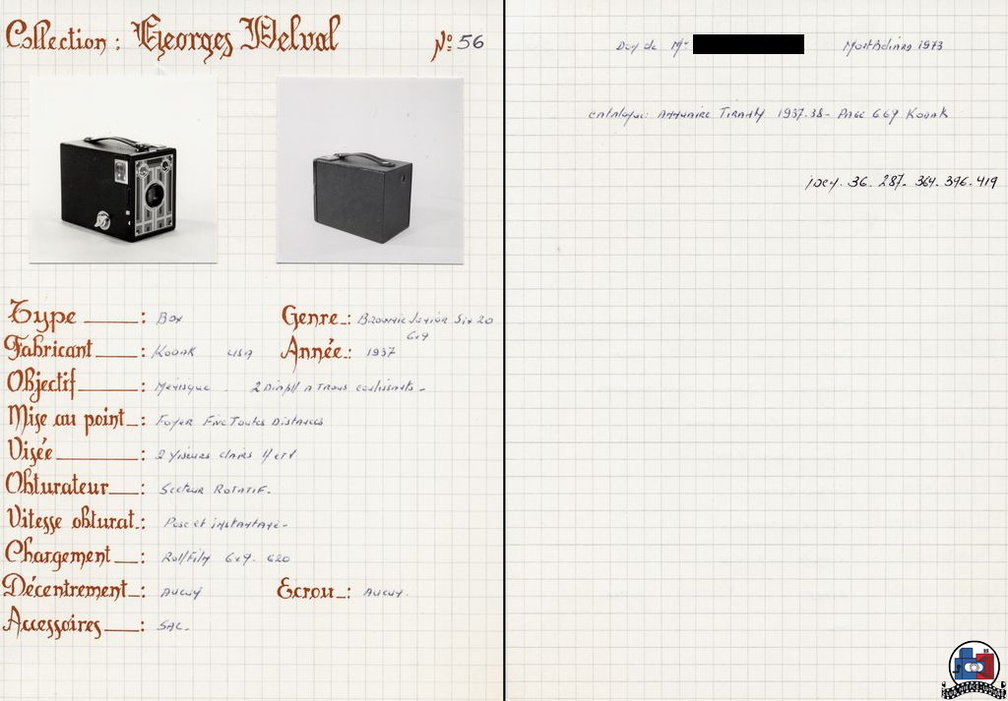 Collection : Georges Delval Nº 56
Type : Box
Genre : Brownie Junior Six 20
6x9
Fabricant : Kodak USA
Année : 1937
Objectif : Ménisque - 2 Diaph a Trous coulissants -
Mise au point : Foyer Fixe Toutes Distances
Visée : 2 Viseurs clairs H et V
Obturateur : Secteur Rotatif.
Vitesse obturat. : Pose et instantané -
Chargement : Roll Film 6x9. 620
Décentrement : aucun
Ecrou : aucun.
Accessoires : Sac.
Don de Mr
1973
catalogue: Annuaire Tiranty 1937.38 - Page 669 Kodak
36. 287. 364. 396. 419